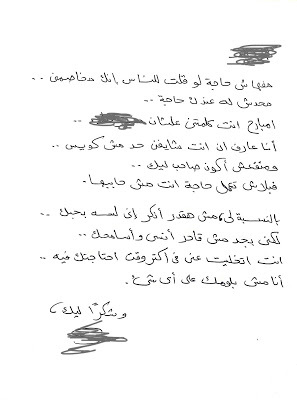 مفهاش حاجة لو قلت للناس إنك مخاصمنى ..
محدش له عندك حاجة ..
امبارح انت كلمتنى علشان ..
أنا عارف إن انت شايفنى حد مش كويس ..
ومنفعش أكون صاحب ليك ..
فبلاش تعمل حاجة انت مش حاببها .
بالنسبة لى، مش هقدر أنكر إنى لسه بحبك ..
لكن بجد مش قادر أنسى وأسامحك ..
انت اتخليت عنى فى أكتر وقت احتاجتك فيه ..
أنا مش بلومك على أى شىء .
وشكرًا ليك،